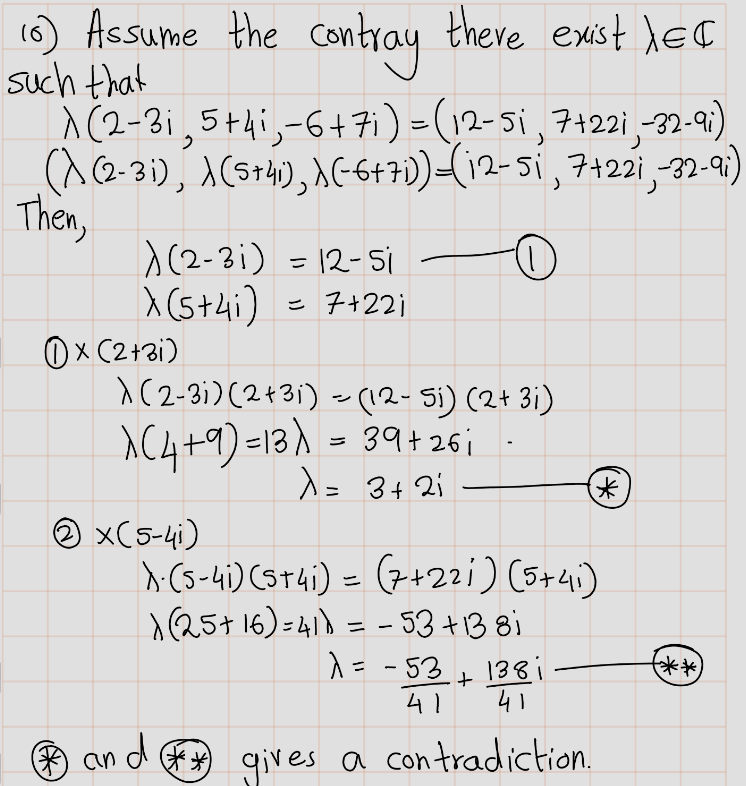 10) Assume the contray there exist λ∈ℂ
such that
λ(2-3i, 5+4i, -6+7i) = (12-5i, 7+22i, -32-9i)
(λ(2-3i), λ(5+4i), λ(-6+7i)) = (12-5i, 7+22i, -32-9i)
Then,
λ(2-3i) = 12-5i — ①
λ(5+4i) = 7+22i
① × (2+3i)
λ(2-3i)(2+3i) = (12-5i)(2+3i)
λ(4+9)=13λ = 39+26i
λ = 3+2i — ⊛
② ×(5-4i)
λ·(5-4i)(5+4i) = (7+22i)(5+4i)
λ(25+16)=41λ = -53+138i
λ = -53/41 + 138/41 i — (**)
⊛ and (**) gives a contradiction.